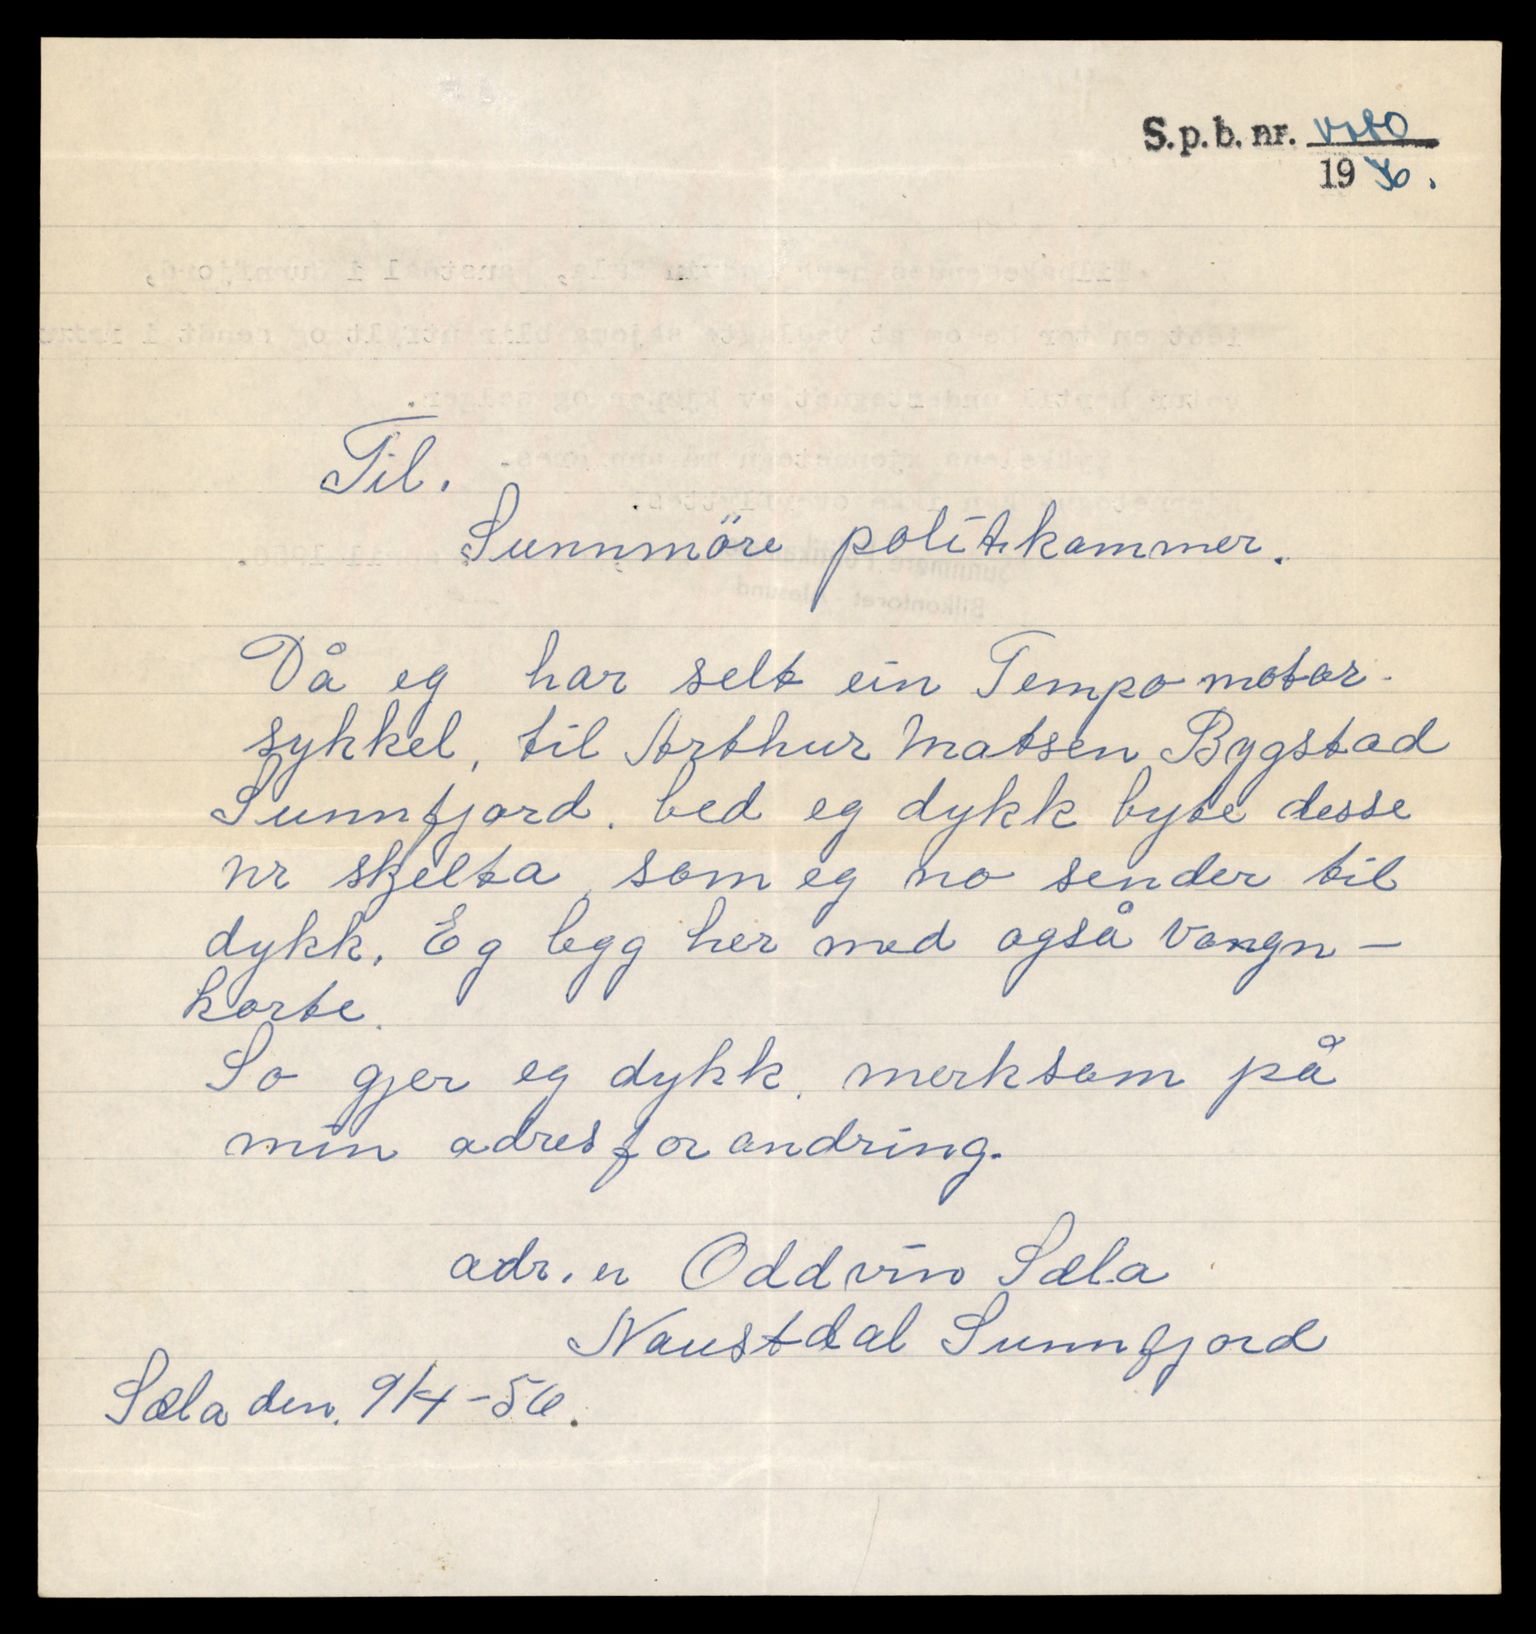 S.p.b. nr.
19 56.
Til.
Sunnmöre politikammer.
Då eg har selt ein Tempo motor-
sykkel, til Arthur Matsen Bygstad
Sunnfjord. bed eg dykk byte desse
nr skjelta, som eg no sender til
dykk. Eg legg her med også Vongn-
korte.
So gjer eg dykk, merksam på
min adresforandring.
adr. er Oddvin Sæla
Naustdal Sunnfjord
Sæla den. 9/4-56.